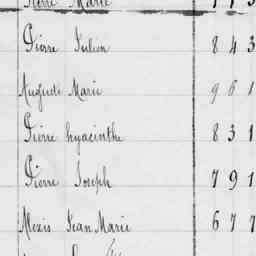 Pierre Marie
Pierre Julien 8 4 3
Auguste Marie 9 6 1
Pierre hyacinthe 8 3 1
Pierre Joseph 7 9 1
Alexis Jean Marie 6 7 7